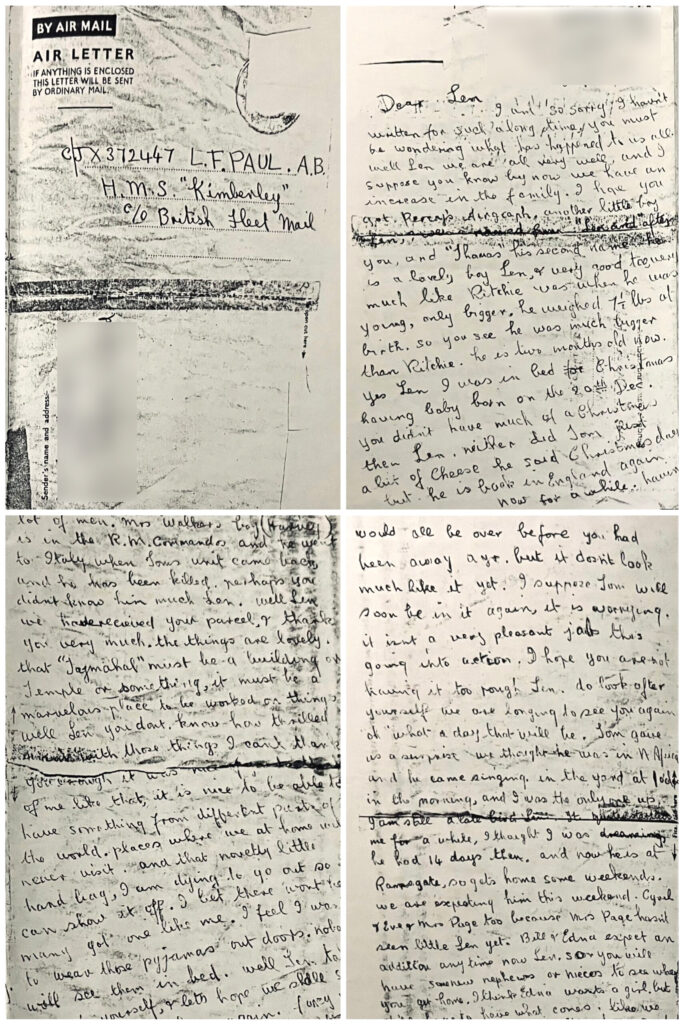 BY AIR MAIL
AIR LETTER
IF ANYTHING IS ENCLOSED
THIS LETTER WILL BE SENT
BY ORDINARY MAIL.
C/JX372447 L.F.PAUL. A.B.
H.M.S. "Kimberley"
c/o British Fleet Mail
Sender's name and address:
Dear Len
I am so sorry I havn't
written for such a long time, you must
be wondering what has happened to us all.
well Len we are all very well, and I
suppose you know by now we have an
increase in the family. I hope you
got Percys airgraph. another little boy
Len, named after
you, and "Thomas" his second name. He
is a lovely boy Len, & very good too, very
much like Ritchie was when he was
young, only bigger. he weighed 7½ lbs at
birth. so you see he was much bigger
than Ritchie. he is two months old now.
yes Len I was in bed for Christmas
having baby born on the 20th Dec.
you didn't have much of a Christmas
then Len. neither did Tom just
a bit of Cheese he said Christmas day
but he is back in England again
now for a while. having
lot of men. Mrs Walkers boy
is in the R.M. Commandos and he went
to Italy when Toms unit came back
and he has been killed. perhaps you
didn't know him much Len. well Len
we have received your parcel, & thank
you very much. the things are lovely.
that "Tajmahal" must be a building or
Temple or something, it must be a
marvelous place to be worked on things
well Len you dont know how thrilled
with those things I can't thank
you enough it was
of me like that, it is nice to be able to
have something from different parts of
the world. places where we at home will
never visit. and that novelty little
hand bag, I am dying to go out so I
can show it off. I bet there wont be
many got one like me. I feel I want
to wear those pyjamas out doors. nobody
will see them in bed. well Len take
yourself, & lets hope we shall
would all be over before you had
been away a yr. but it dosn't look
much like it yet. I suppose Tom will
soon be in it again, it is worrying.
it isnt a very pleasant job this
going into action. I hope you are not
having it too rough Len. do look after
yourself we are longing to see you again
what a day that will be. Tom gave
us a surprise we thought he was in N Africa
and he came singing in the yard at 1 oclock
in the morning, and I was the only one up.
I am still a late bird Len. It
me for a while, I thought I was dreaming,
he had 14 days then. and now he is at
Ramsgate, so gets home some weekends.
we are expecting him this weekend. Cyril
& Eve & Mrs Page too because Mrs Page hasnt
seen little Len yet. Bill & Edna expect an
addition anytime now Len. so you will
have some new nephews or nieces to see when
you get home. I think Edna wants a girl. but
to have what comes. like we